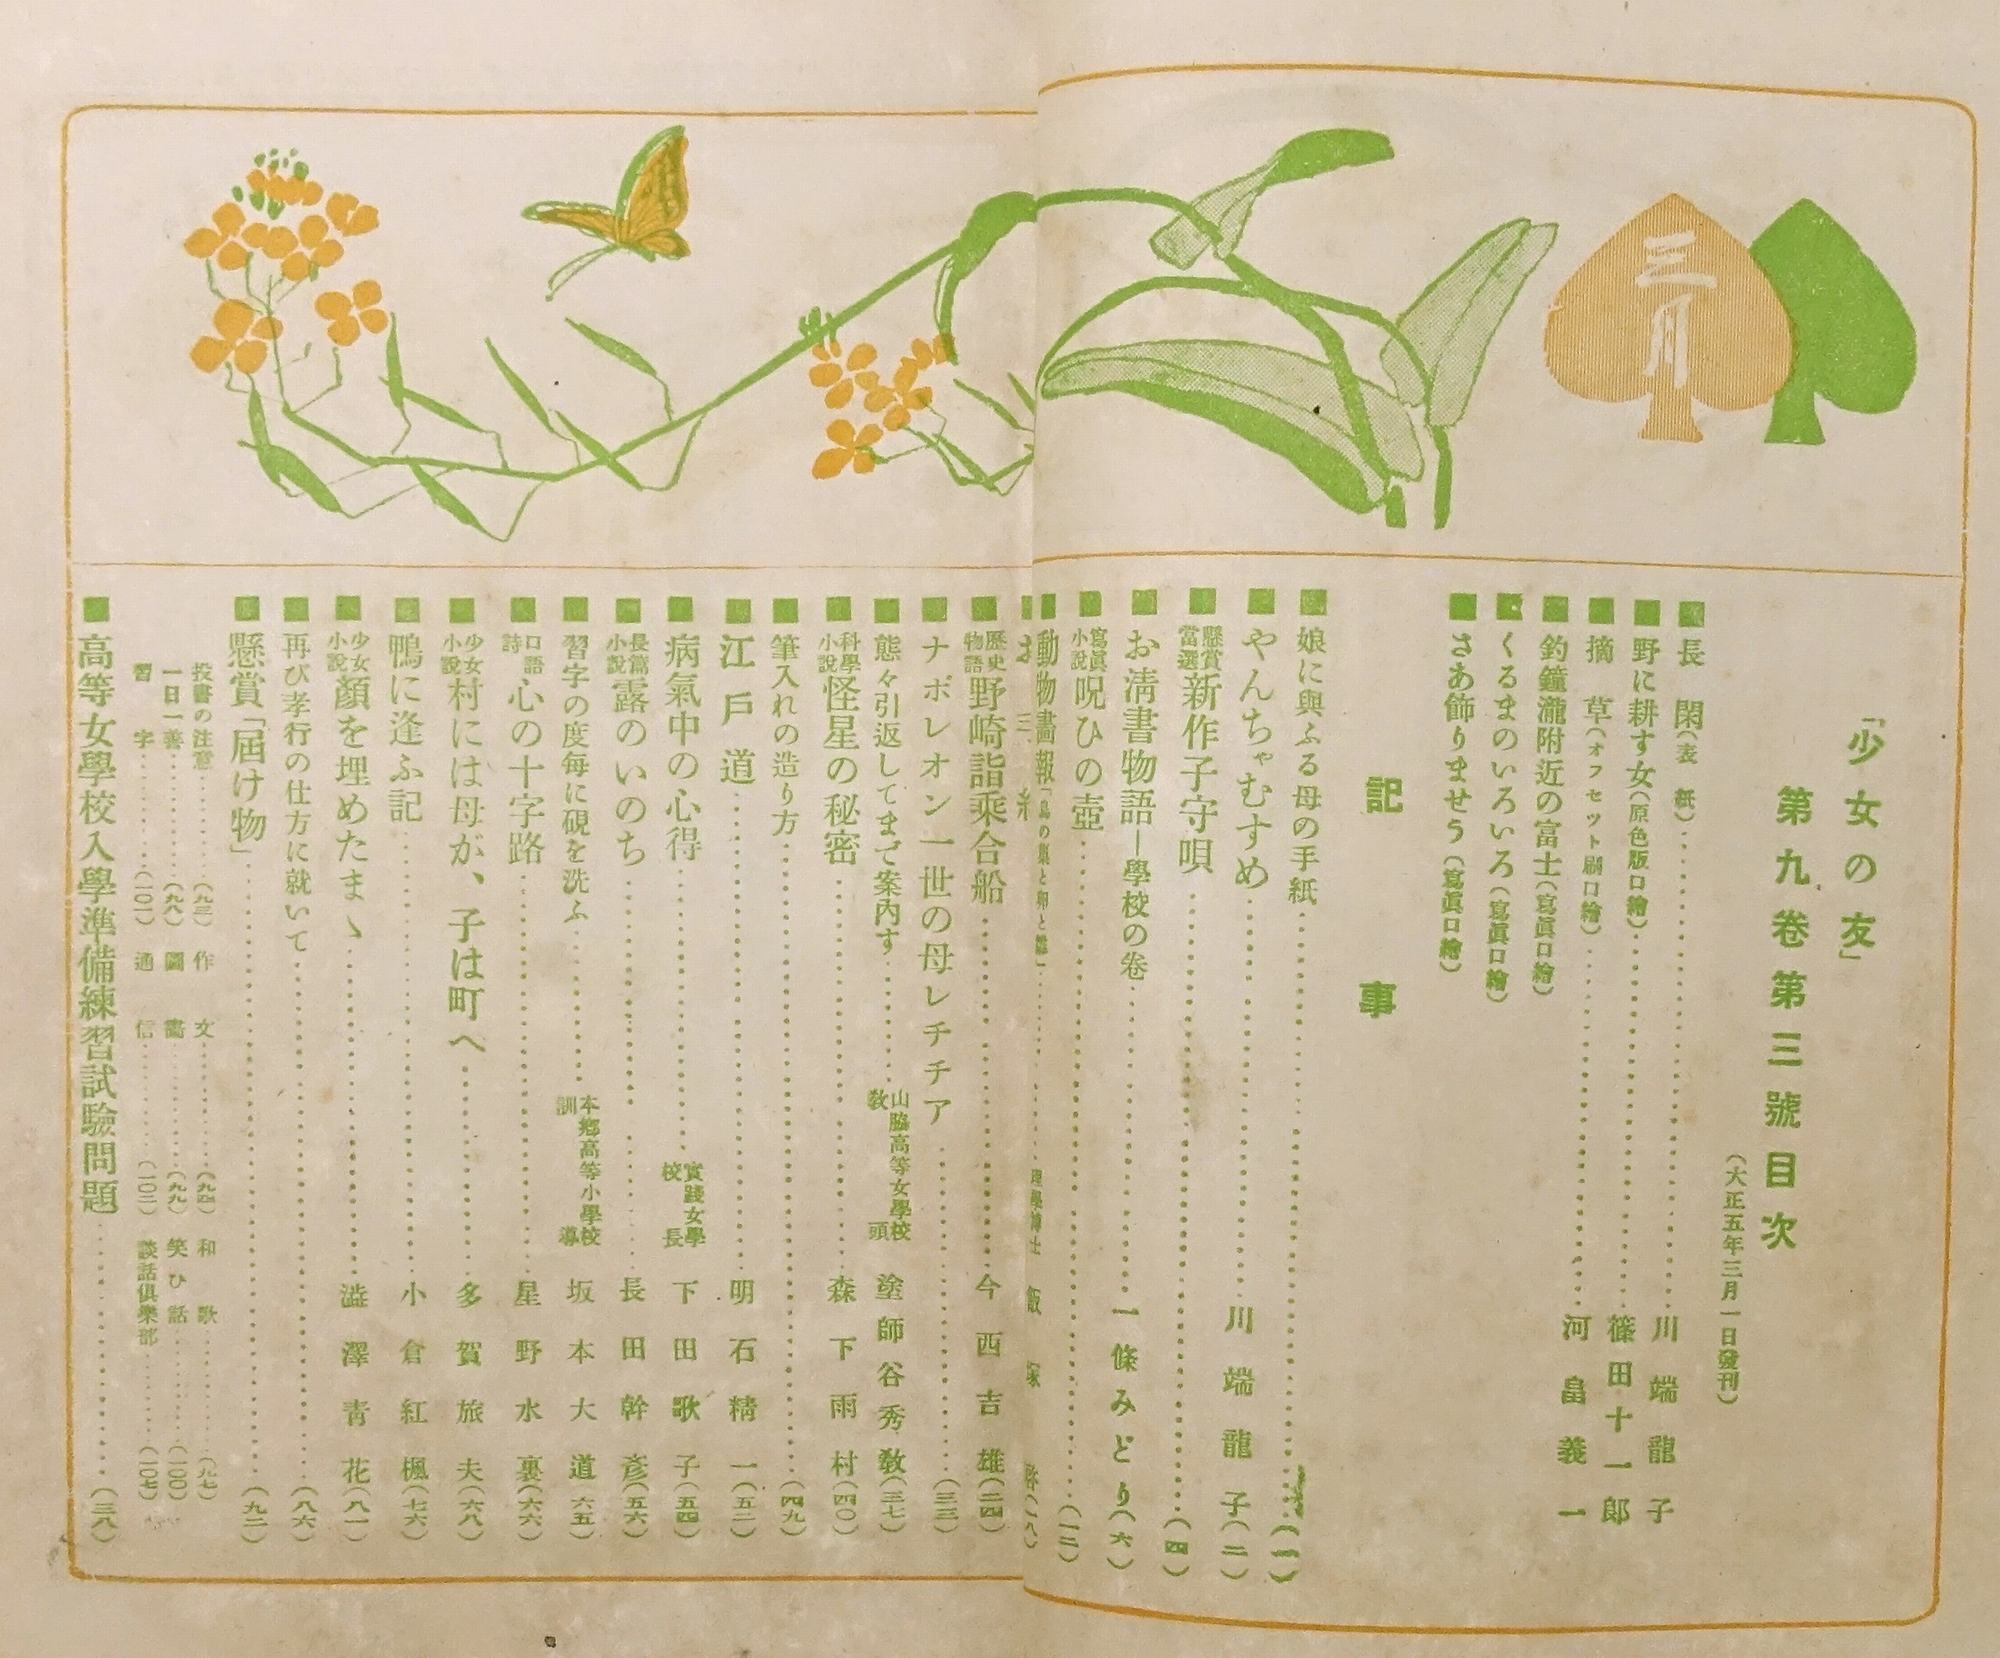 三月
「少女の友」
第九卷第三號目次
(大正五年三月一日發刊)
■長閑(表紙)………川端龍子
■野に耕す女(原色版口繪)………篠田十一郎
■摘草(オフセット刷口繪)………河畠義一
■釣鐘瀧附近の富士(寫眞口繪)
■くるまのいろいろ(寫眞口繪)
■さあ飾りませう(寫眞口繪)
記事
■娘に與ふる母の手紙………(一)
■やんちやむすめ………川端龍子(二)
■懸賞當選新作子守唄………(四)
■お淸書物語―學校の卷………一條みどり(六)
■寫眞小說呪ひの壺………(一二)
■動物畫報「鳥の巢と卵と雛」………理學博士 飯塚
■歷史物語野崎詣乘合船………今西吉雄(二四)
■ナポレオン一世の母レチチア………(三三)
■態々引返してまで案內す………山脇高等女學校敎頭 塗師谷秀敎(三七)
■科學小說怪星の秘密………森下雨村(四〇)
■筆入れの造り方………(四九)
■江戶道………明石精一(五二)
■病氣中の心得………實踐女學校長 下田歌子(五四)
■長篇小說露のいのち………長田幹彥(五六)
■習字の度每に硯を洗ふ………本鄕高等小學校訓導 坂本大道(六五)
■口語詩心の十字路………星野水裏(六六)
■少女小說村には母が、子は町へ………多賀旅夫(六八)
■鴨に逢ふ記………小倉紅楓(七六)
■少女小說顏を埋めたまゝ………澁澤靑花(八一)
■再び孝行の仕方に就いて………(八六)
■懸賞「屆け物」………(九二)
投書の注意………(九三) 作文………(九四) 和歌………(九七)
一日一善………(九八) 圖畵………(九九) 笑ひ話………(一〇〇)
習字………(一〇一) 通信………(一〇二) 談話俱樂部………(一〇七)
■高等女學校入學準備練習試驗問題………(三八)